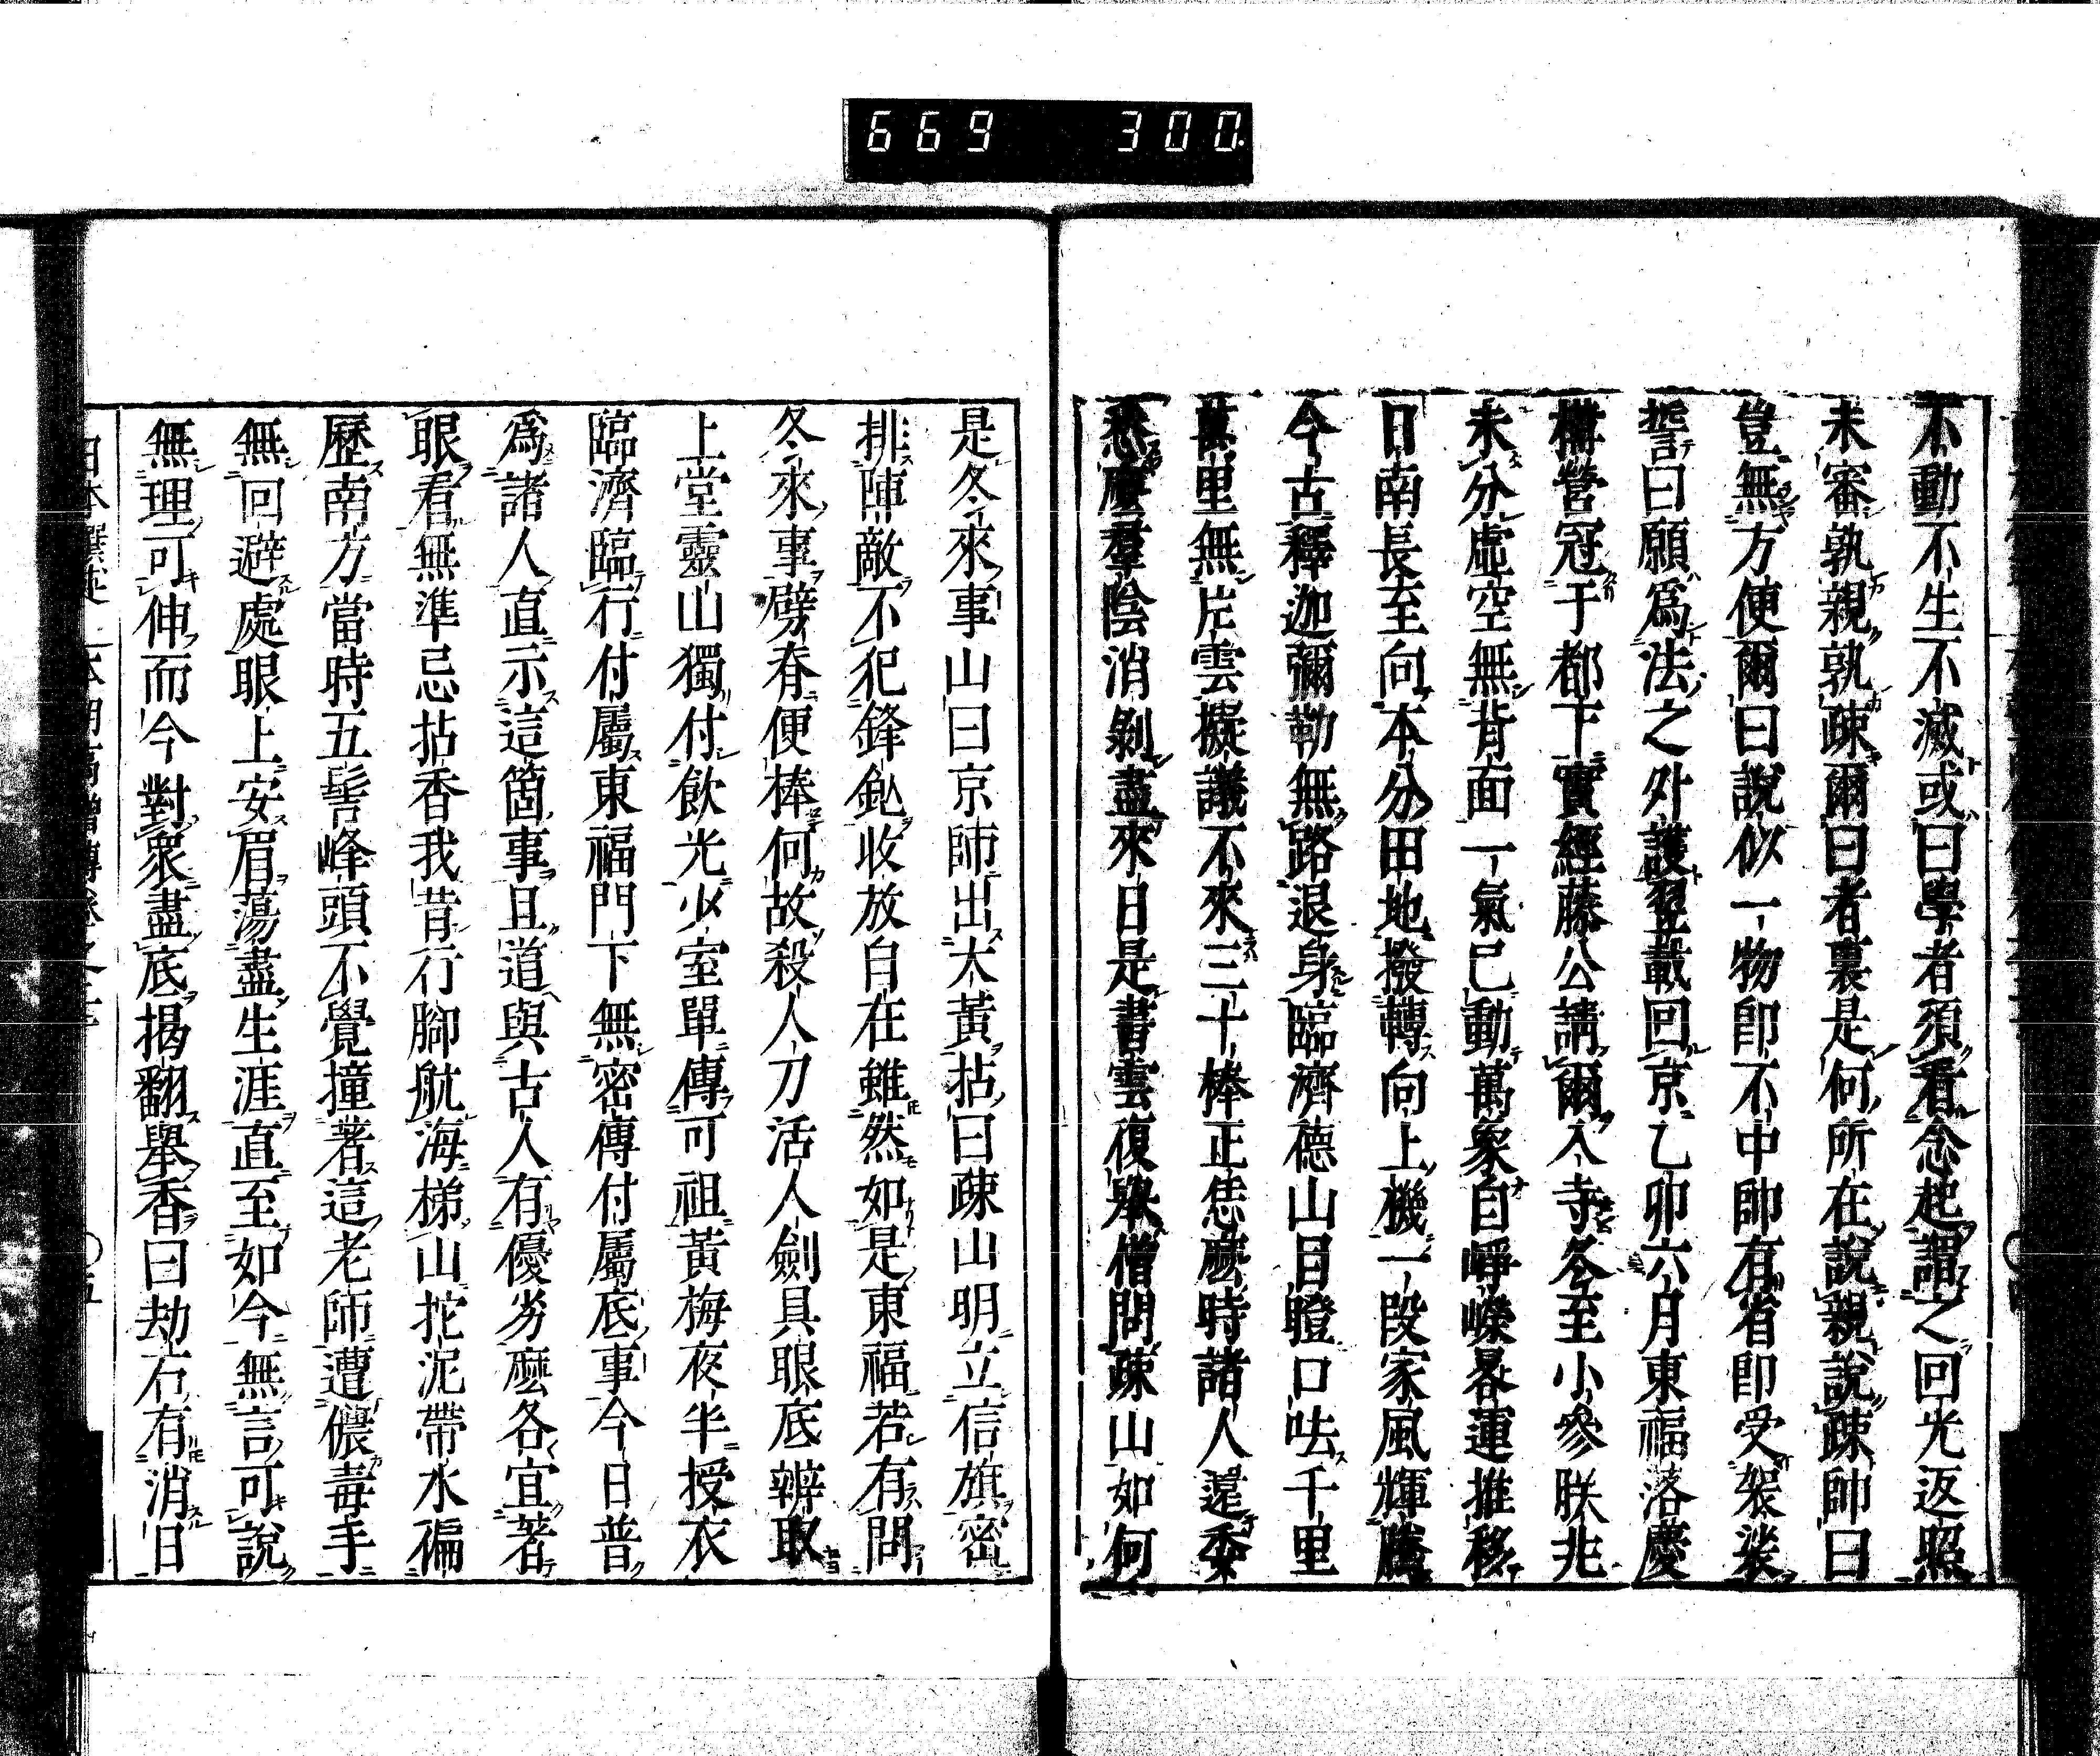 669 300
不動不生不滅或曰學者須看念起謂之回光返照
未審孰親孰疎爾曰者裏是何所在說親說疎帥曰
豈無方便爾曰說似一物卽不中帥有省卽受袈裟
誓曰願爲法之外護翌載回京乙卯六月東福落慶
構營冠于都下實經藤公請爾入寺冬至小參朕兆
未分虛空無背面一氣已動萬象自崢嶸晷運推移
日南長至向本分田地撥轉向上機一段家風輝騰
今古釋迦彌勒無路退身臨濟德山目瞪口呿千里
萬里無片雲擬議不來三十棒正恁麼時諸人還委
悉麼羣陰消剝盡來日是書雲復舉僧問疎山如何
是冬來事山曰京師出大黃拈曰疎山明立信旗密
排陣敵不犯鋒鈚收放自在雖然如是東福若有問
冬來事劈脊便棒何故殺人刀活人劍具眼底辨取
上堂靈山獨付飮光少室單傳可祖黃梅夜半授衣
臨濟臨行付屬東福門下無密傳付屬底事今日普
爲諸人直示這箇事且道與古人有優劣麼各宜著
眼看無準忌拈香我昔行脚航海梯山拕泥帶水徧
歷南方當時五髻峰頭不覺撞著這老師遭儂毒手
無回避處眼上安眉蕩盡生涯直至如今無言可說
無理可伸而今對衆盡底揭翻舉香曰劫石有消日